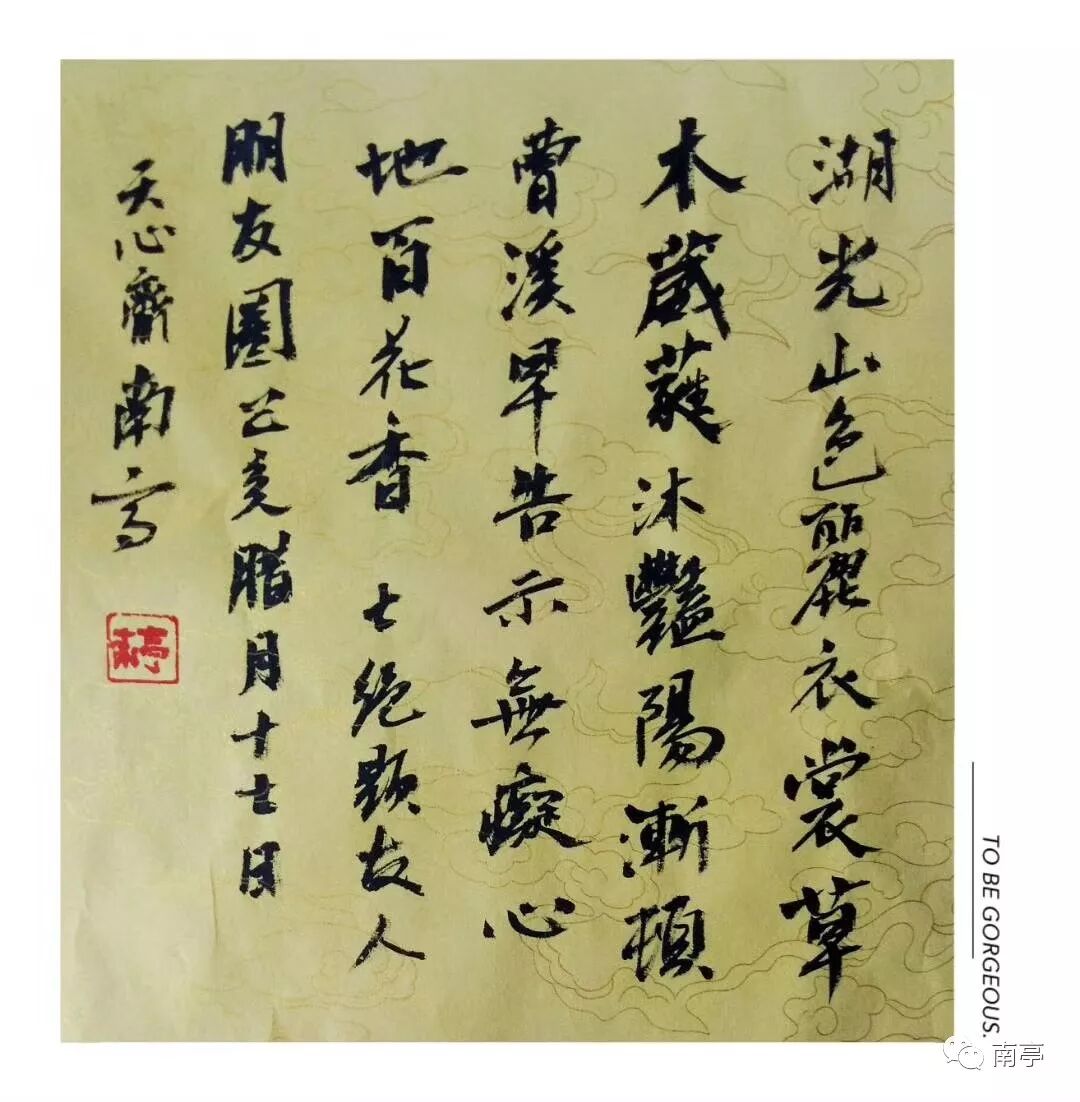 湖光山色麗衣裳草
木葳蕤沐艷陽漸頓
曹溪早告示無癡心
地百花香 七絕題友人
朋友圈 己亥臘月十七日
天心齋南亭
TO BE GORGEOUS.
南亭